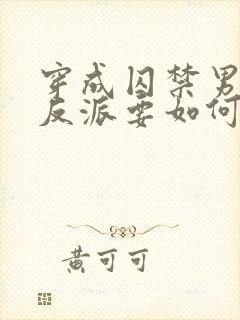 穿成囚禁男
反派要如何
黄可可